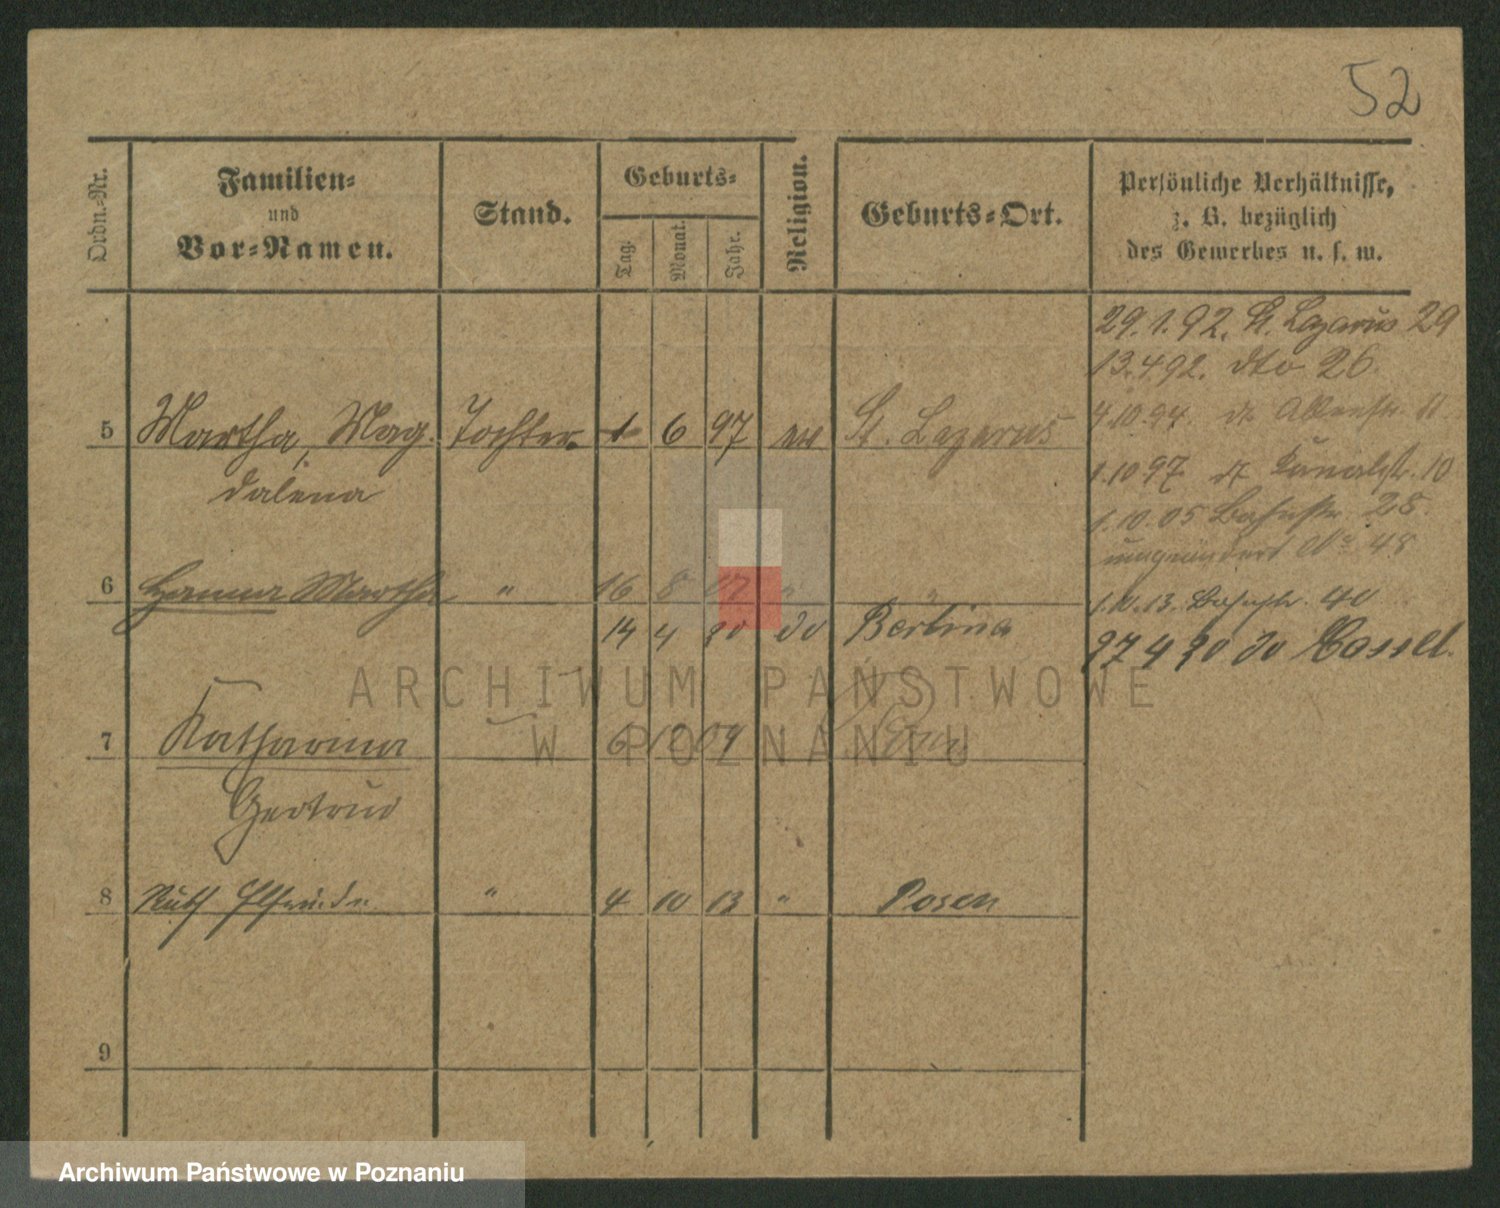 52
Ordn.-Nr.
Familien-
und
Vor-Namen.
Stand.
Geburts-
Tag.
Monat.
Jahr.
Religion.
Geburts-Ort.
Persönliche Verhältnisse,
z. B. bezüglich
des Gewerbes u. s. w.
29.1.92. St. Lazarus 29
13.4.92. dto 26.
4.10.94. 11
5 Martha, Mag- Tochter 1 6 97 ev St. Lazarus
dalena
1.10 97 Kanalstr. 10
1.10.05 Bahnstr. 28.
umgeändert No 48
6 Hanna Martha " 16 8 " "
1.10.13. Bahnstr. 40
14 4 20 do Berlin
27 4 20 do Cassel.
ARCHIWUM PAŃSTWOWE
W POZNANIU
7 Katharina 6 12 04
Gertrud
8 Ruth Elfriede " 4 10 13 " Posen
9
Archiwum Państwowe w Poznaniu